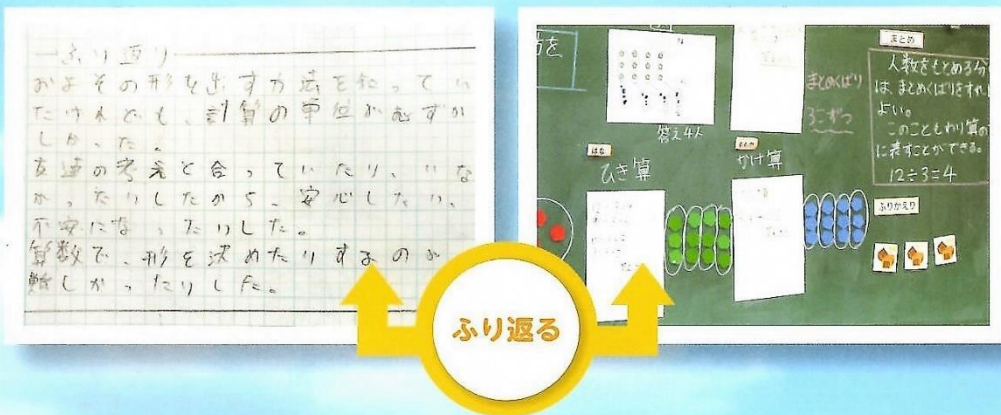 ふり返り
およその形を出す方法を知ってい
たけれども、計算の単位がむずか
しかった。
友達の考えと合っていたり、いな
かったりしたから、安心したり、
不安になったりした。
算数で、形を決めたりするのが
難しかったりした。
方を
答え4人
まとめくばり
3こずつ
まとめ
人数をもとめる分
は、まとめくばりをすれ
よい。
このこともわり算の
に表すことができる。
12÷3=4
はな
ひき算
かけ算
ふりかえり
ふり返る